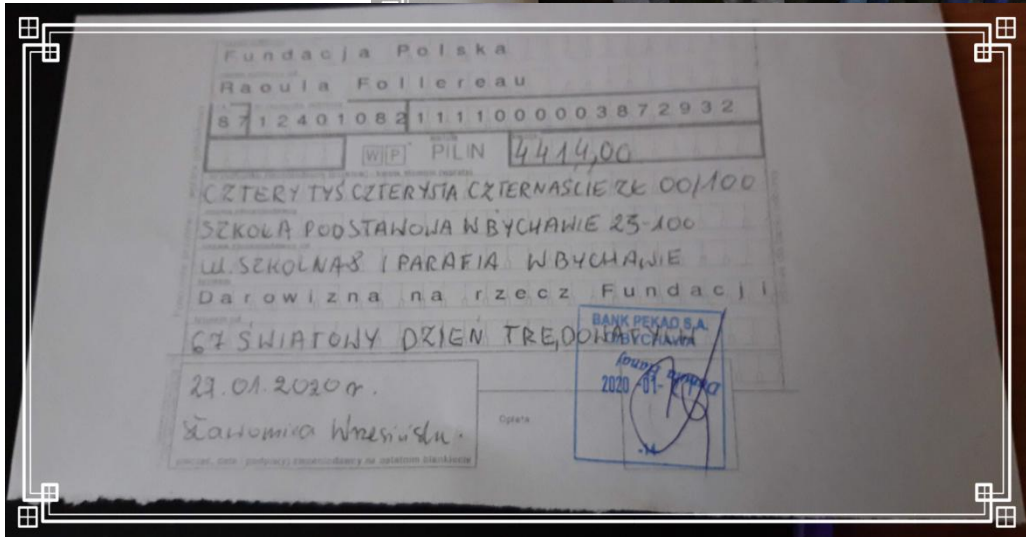 Fundacja Polska
Raoula Follereau
87 12401082 1111000003872932
W P PLN 4414,00
CZTERY TYŚ CZTERYSTA CZTERNAŚCIE ZŁ 00/100
SZKOŁA PODSTAWOWA W BYCHAWIE 23-100
UL. SZKOLNA 8 I PARAFIA W BYCHAWIE
Darowizna na rzecz Fundacji
67 ŚWIATOWY DZIEŃ TRĘDOWATYCH
BANK PEKAO S.A.
W BYCHAWA
Danuta
2020 -01-
-14
29.01.2020 r.
Sławomira
Opłata